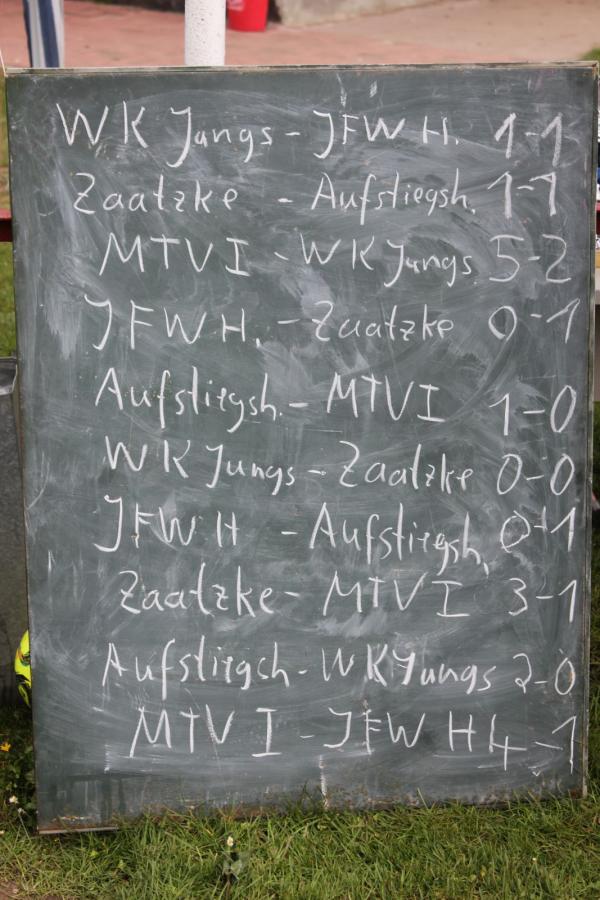 WK Jungs - JFWH. 1-1
Zaatzke - Aufstiegsh. 1-1
MTV I - WK Jungs 5-2
JFWH. - Zaatzke 0-1
Aufstiegsh. - MTVI 1-0
WK Jungs - Zaatzke 0-0
JFWH - Aufstiegsh. 0-1
Zaatzke - MTVI 3-1
Aufstiegsh - WKJungs 2-0
MTV I - JFWH 4-1